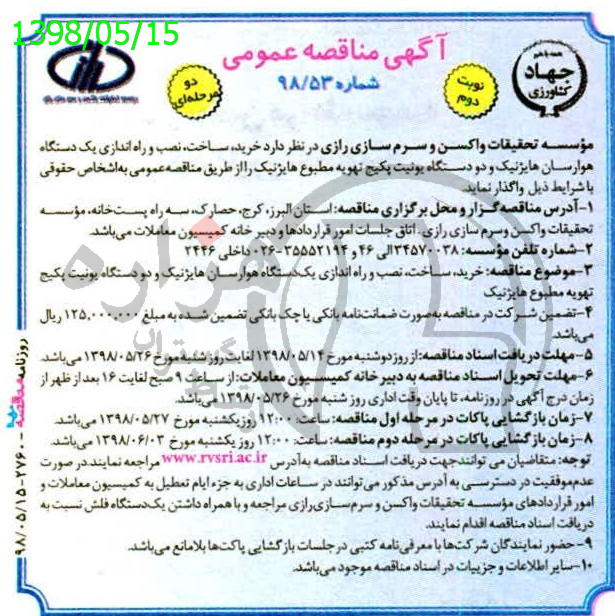 1398/05/15
آگهی مناقصه عمومی
شماره ۹۸/۵۳
دو مرحله‌ای
نوبت دوم
جهاد کشاورزی
مؤسسه تحقیقات واکسن و سرم سازی رازی در نظر دارد خرید، ساخت، نصب و راه اندازی یک دستگاه
هوارسان هایژنیک و دو دستگاه یونیت پکیج تهویه مطبوع هایژنیک را از طریق مناقصه عمومی به اشخاص حقوقی
با شرایط ذیل واگذار نماید.
۱-آدرس مناقصه گزار و محل برگزاری مناقصه: استان البرز، کرج، حصارک، سه راه پست خانه، مؤسسه
تحقیقات واکسن و سرم سازی رازی. اتاق جلسات امور قراردادها و دبیر خانه کمیسیون معاملات می‌باشد.
۲-شماره تلفن مؤسسه: ۳۴۵۷۰۰۳۸ الی ۴۶ و ۳۵۵۵۲۱۹۴-۰۲۶ داخلی ۲۴۴۶
۳-موضوع مناقصه: خرید، ساخت، نصب و راه اندازی یک دستگاه هوارسان هایژنیک و دو دستگاه یونیت پکیج
تهویه مطبوع هایژنیک
۴-تضمین شرکت در مناقصه به صورت ضمانت نامه بانکی یا چک بانکی تضمین شده به مبلغ ۱۲۵,۰۰۰,۰۰۰ ریال
می‌باشد.
۵-مهلت دریافت اسناد مناقصه: از روز دوشنبه مورخ ۱۳۹۸/۰۵/۱۴ لغایت روز شنبه مورخ ۱۳۹۸/۰۵/۲۶ می‌باشد.
۶-مهلت تحویل اسناد مناقصه به دبیر خانه کمیسیون معاملات: از ساعت ۹ صبح لغایت ۱۶ بعد از ظهر از
زمان درج آگهی در روزنامه، تا پایان وقت اداری روز شنبه مورخ ۱۳۹۸/۰۵/۲۶ می‌باشد.
۷-زمان بازگشایی پاکات در مرحله اول مناقصه: ساعت: ۱۲:۰۰ روز یکشنبه مورخ ۱۳۹۸/۰۵/۲۷ می‌باشد.
۸-زمان بازگشایی پاکات در مرحله دوم مناقصه: ساعت: ۱۲:۰۰ روز یکشنبه مورخ ۱۳۹۸/۰۶/۰۳ می‌باشد.
توجه: متقاضیان می توانند جهت دریافت اسناد مناقصه به آدرس www.rvsri.ac.ir مراجعه نمایند در صورت
عدم موفقیت در دسترسی به آدرس مذکور می توانند در ساعات اداری به جزء ایام تعطیل به کمیسیون معاملات و
امور قراردادهای مؤسسه تحقیقات واکسن و سرم سازی رازی مراجعه و با همراه داشتن یک دستگاه فلش نسبت به
دریافت اسناد مناقصه اقدام نمایند.
۹-حضور نمایندگان شرکت ها با معرفی نامه کتبی در جلسات بازگشایی پاکت ها بلامانع می‌باشد.
۱۰-سایر اطلاعات و جزییات در اسناد مناقصه موجود می‌باشد.
روزنامه مناقصه - ۲۷۶۰ - ۹۸/۰۵/۱۵
هزاره